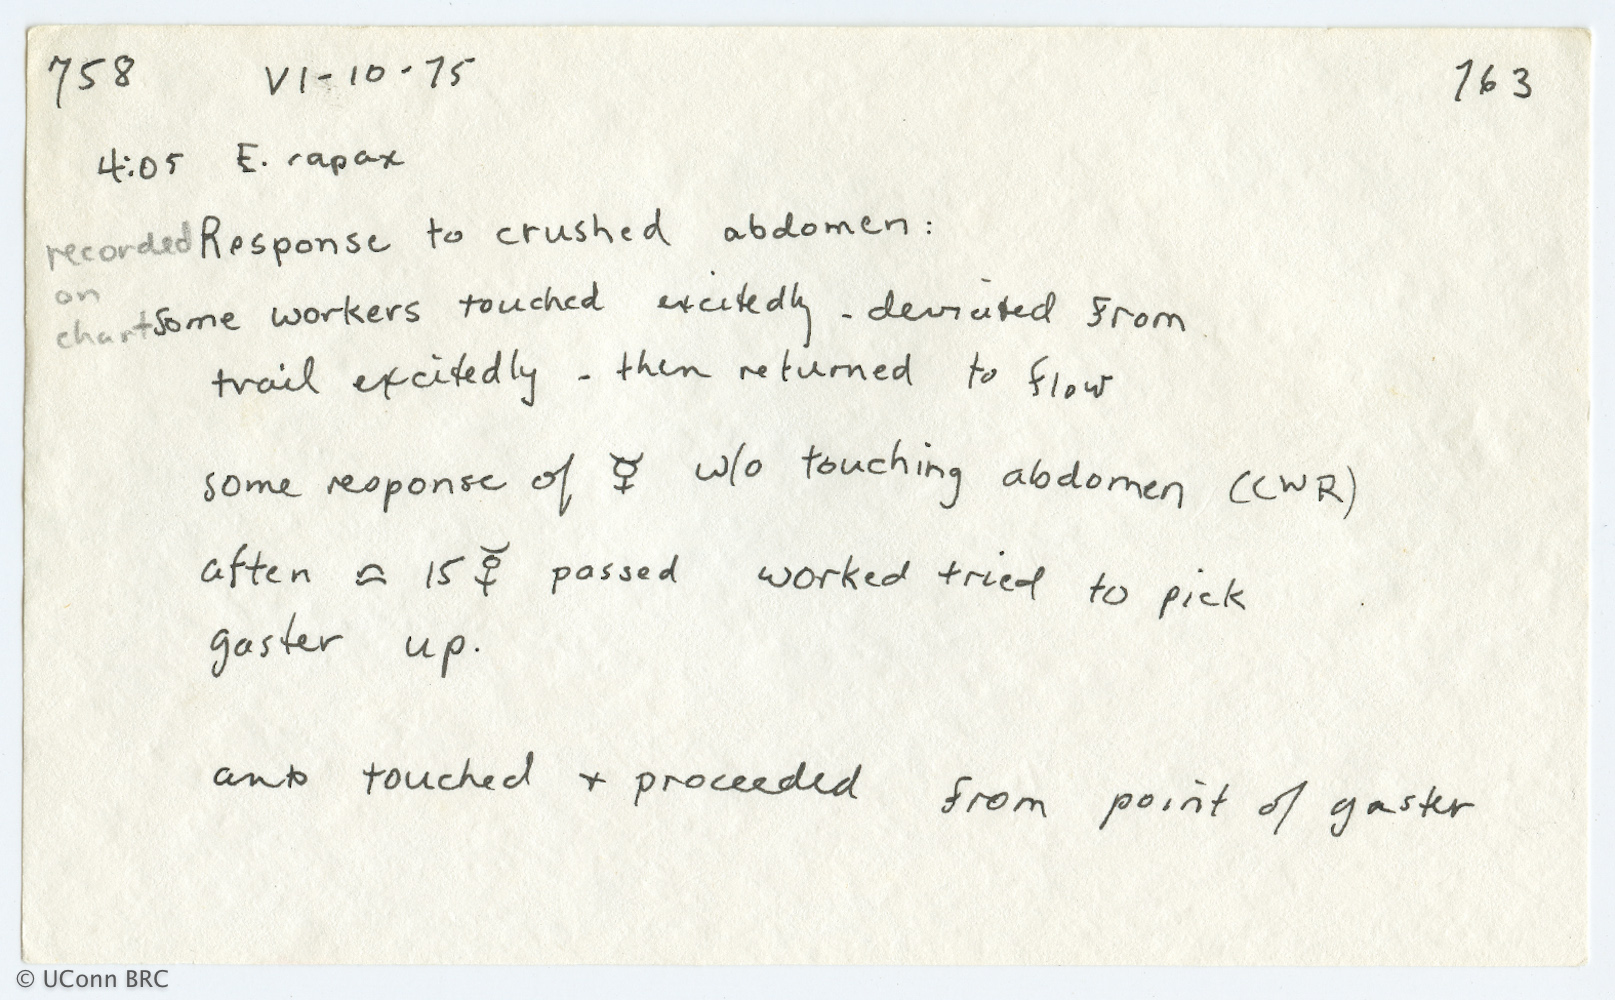 758 VI-10-75 763
4:05 E. rapax
recorded Response to crushed abdomen:
on
chart Some workers touched excitedly - deviated from
trail excitedly - then returned to flow
some response of ☿ w/o touching abdomen (CWR)
after ≈ 15 ☿ passed worked tried to pick
gaster up.
ants touched + proceeded from point of gaster
© UConn BRC